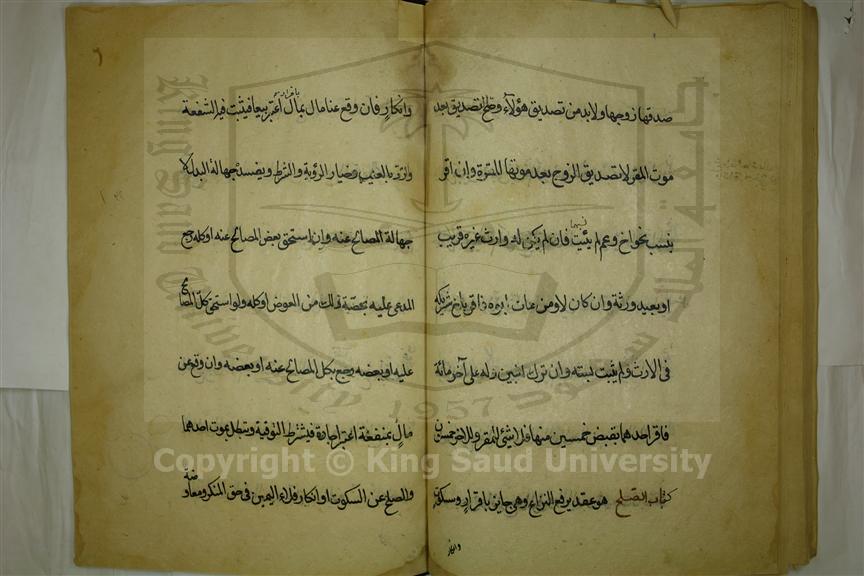 صدقها زوجها ولا بد من تصديق هؤلاء وصح التصديق بعد
موت المقر لا تصديق الزوج بعد موتها للمقرة وان اقر
بنسب نحو اخ وعم لم يثبت فان لم يكن له وارث غيره قريب
او بعيد ورثه وان كان لا ومن مات ابوه فاقر باخ شركه
فى الارث ولم يثبت نسبه وان ترك ابنين وله على آخر مائة
فاقر احدهما بقبض خمسين منها فلا شئ للمقر وللاخر خمسون
كتاب الصلح هو عقد يرفع النزاع وهى جايز باقرار وسكوت
وانكار
وانكار فان وقع عن مال بمال اعتبر بيعا فيثبت فيه الشفعة
والرد بالعيب وخيار الرؤية والشرط ويفسده جهالة البدل لا
جهالة المصالح عنه وان استحق بعض المصالح عنه او كله رجع
المدعى عليه بحصة ذلك من العوض او كله ولو استحق كل المصالح
عليه او بعضه رجع بكل المصالح عنه او بعضه وان وقع عن
مال بمنفعة اعتبر اجارة فيشترط التوقيت وتبطل بموت احدهما
والصلح عن السكوت او انكار فداء اليمين فى حق المنكر ومعاوضة
Copyright © King Saud University
King Saud University
1957
جامعة الملك سعود